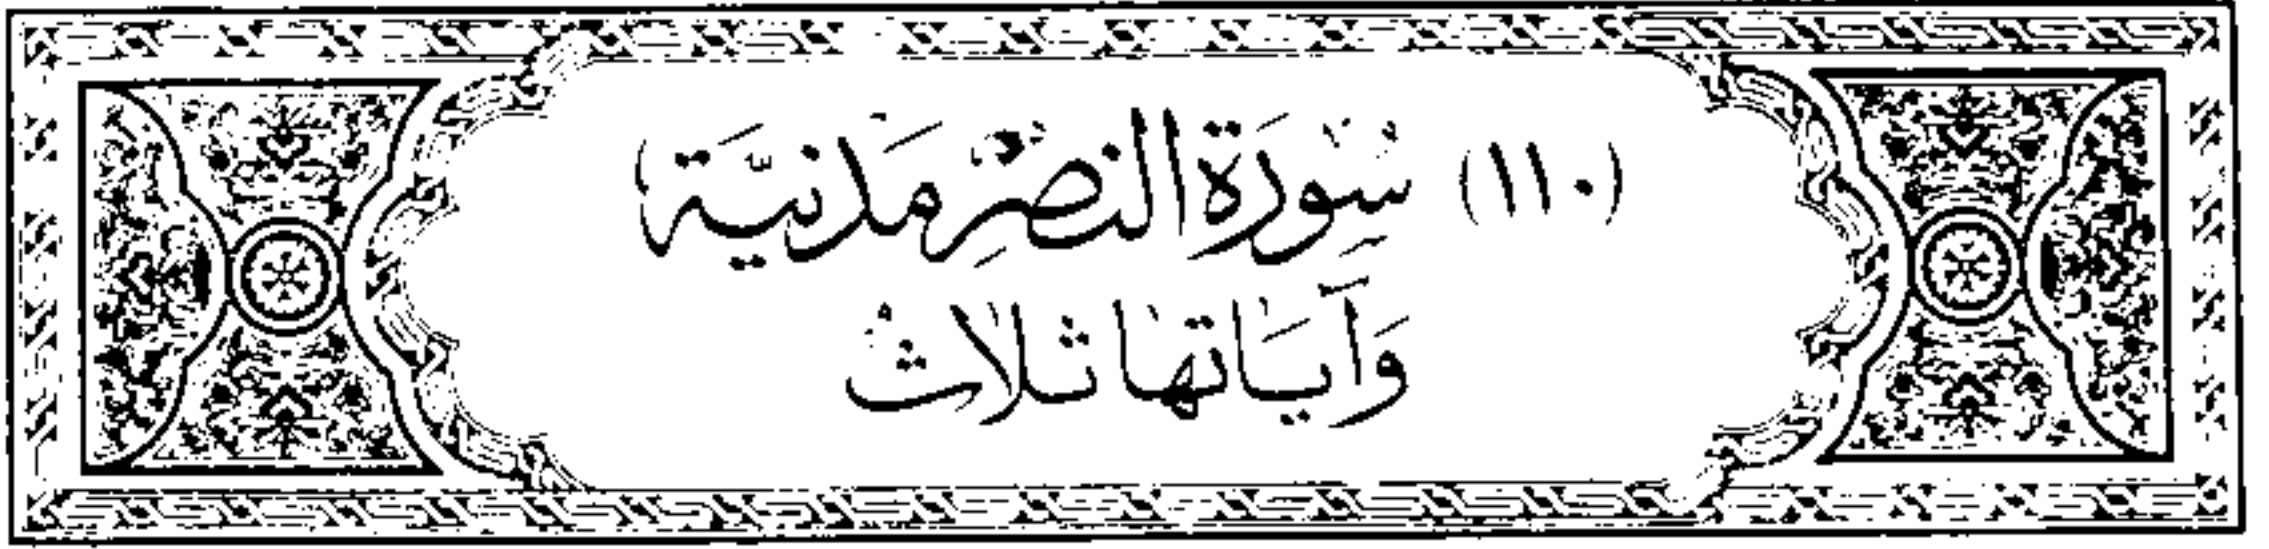 (١١٠) سُورَةِ النَّصْرِ مَدَنِيَّة
وَآيَاتهَا ثَلَاثٌ